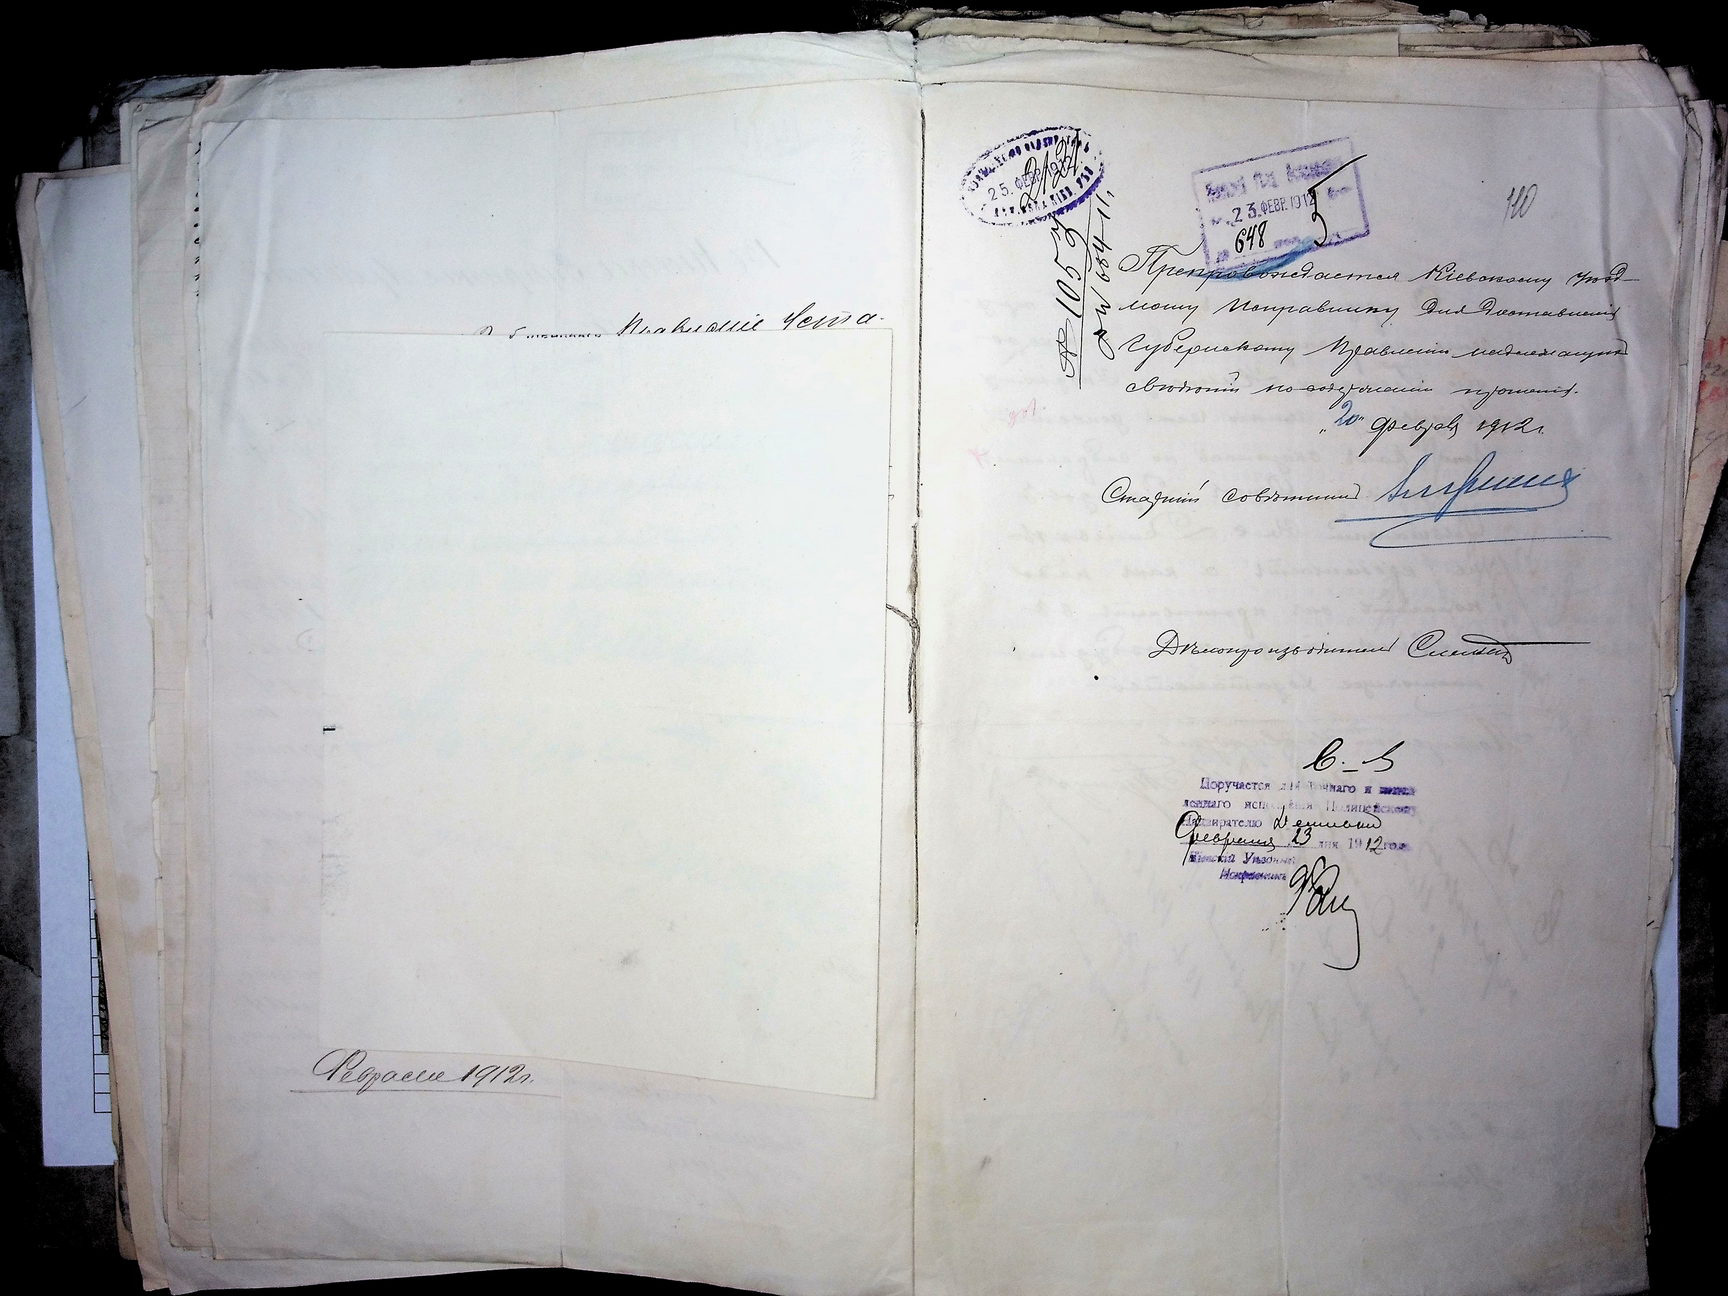 Правленіе Уста-
Февраля 1912 г.
25. ФЕВР. 1912
2121
№ 1057
23. ФЕВР. 1912
648
5
110
Препровождается Кіевскому Уѣзд-
ному Исправнику для доставленія
Губернскому Правленію надлежащихъ
свѣдѣній по содержанію прошенія.
"20" Февраля 1912 г.
Старшій Совѣтникъ
Дѣлопроизводитель
С.-В
Поручается для точнаго и
леннаго исполненія Полицейскому
Надзирателю
Февраля 23 дня 1912 года
Кіевскій Уѣздный
Исправникъ